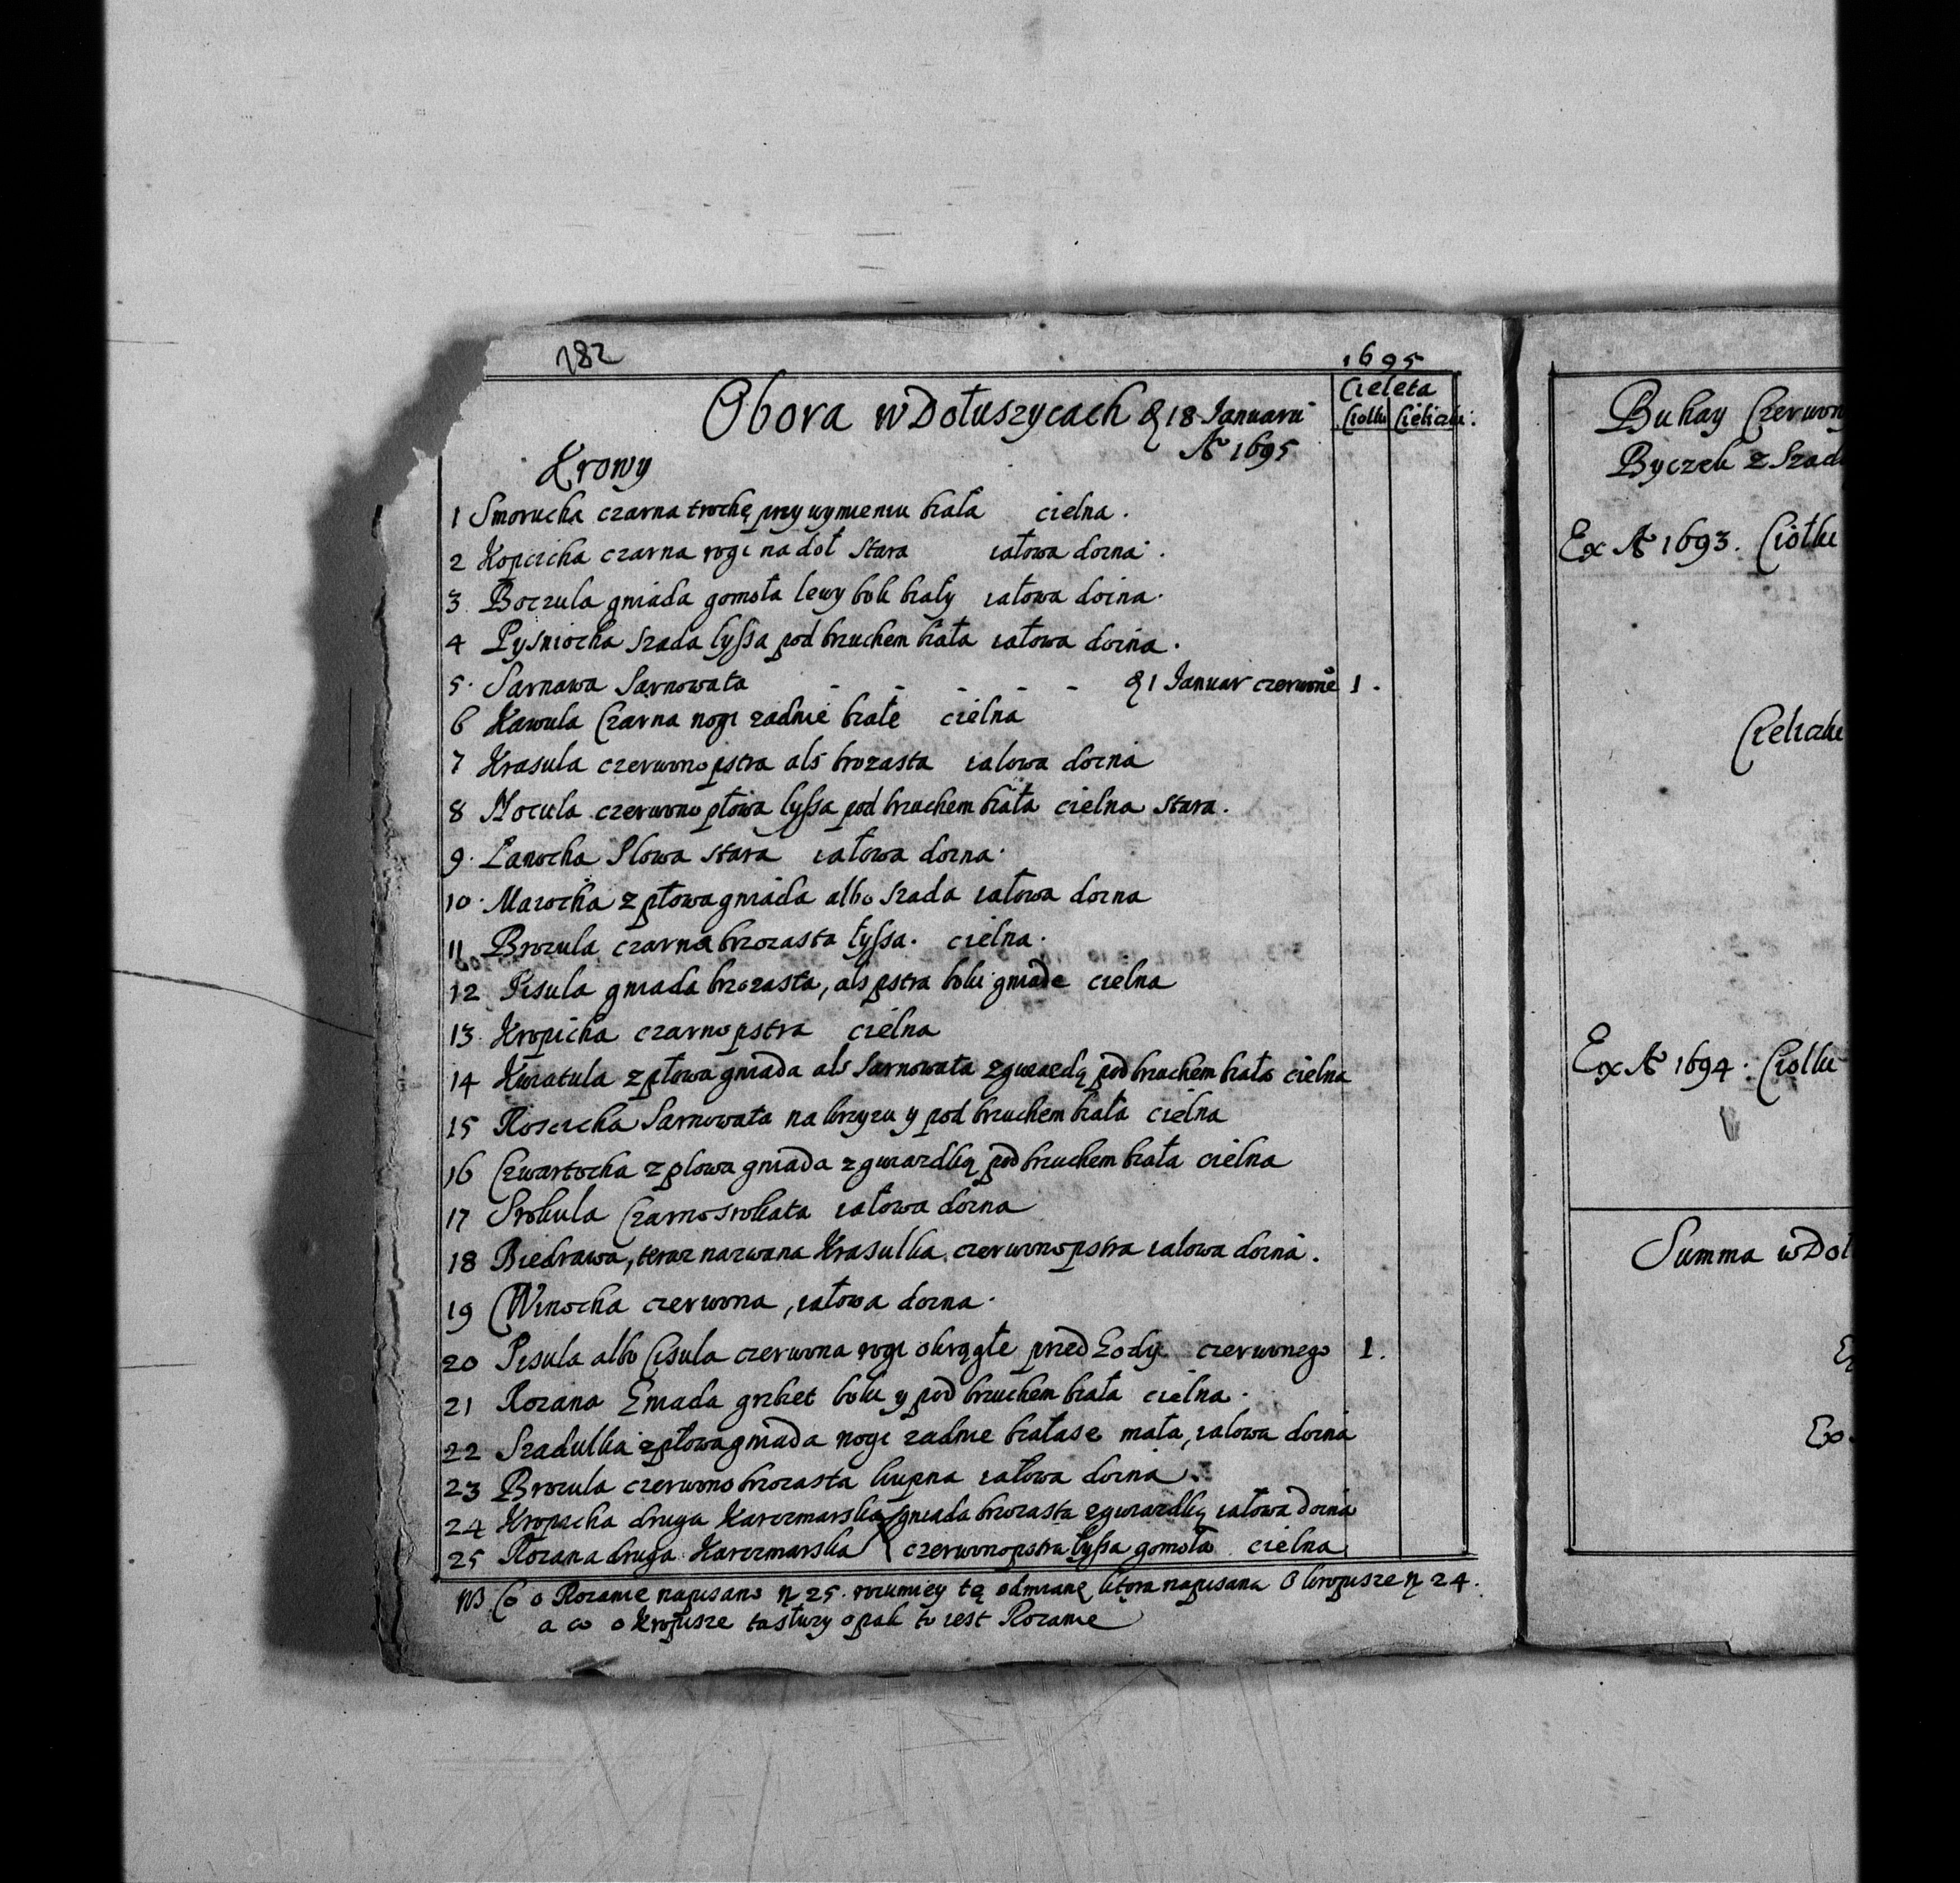 182
1695
Obora w Dołuszycach d 18 Januarii
Aº 1695
Cielęta
Ciołki Cieliczki:
Krowy
1 Smorucha czarna trochę przy wymieniu biała cielna.
2 Kopcicha czarna rogi na doł stara iałowa doina.
3 Boczula gniada gomoła lewy bok biały iałowa doina.
4 Pysniocha szada łyssa pod brzuchem biała iałowa doina.
5. Sarnawa Sarnowata - - - - - d 1 Januar czerwone 1.
6 Kawula Czarna nogi zadnie białe cielna
7 Krasula czerwonopstra als brozasta ialowa doina
8 Kocula czerwono płowa łyssa pod brzuchem biała cielna stara.
9. Łanocha Plowa stara iałowa doina.
10. Marocha z płowa gniada albo szada iałowa doina
11 Brozula czarna brzozasta łyssa. cielna.
12 Pisula gniada brzozasta, als pstra boki gniade cielna
13. Kropicha czarnopstra cielna
14 Kwiatula z płowa gniada als Sarnowata z gwiazdą pod brzuchem biała cielna
15 Roscicha Sarnowata na krzyzu y pod brzuchem biała cielna
16 Czwartocha z plowa gniada z gwiazdką pod brzuchem biała cielna
17 Srokula Czarnosrokata iałowa doina
18 Biedrawa, teraz nazwana Krasulka czerwonopstra iałowa doina.
19 Winocha czerwona, iałowa doina.
20 Pisula albo Cisula czerwona rogi okrągłe przed Gody czerwonego 1.
21 Rozana Gniada grzbiet boki y pod brzuchem biała cielna.
22 Szadulka z płowa gniada nogi zadnie białase mała, ialowa doina
23 Brozula czerwono brozasta kupna iałowa doina.
24 Kropicha druga Karczmarska gniada brozasta z gwiazdką iałowa doina
25 Rozana druga Karczmarska czerwonopstra łyssa gomoła cielna
NB Co o Rozanie napisano n 25. rozumiey tę odmianę ktora napisana o kropisze n 24.
a co o kropisze to słuzy opak to iest Rozanie
Buhay Czerwon
Byczek z Szad
Ex Aº 1693. Ciołki
Cieliczki
Ex Aº 1694. Ciołki
Summa w Doł
Ex
Ex